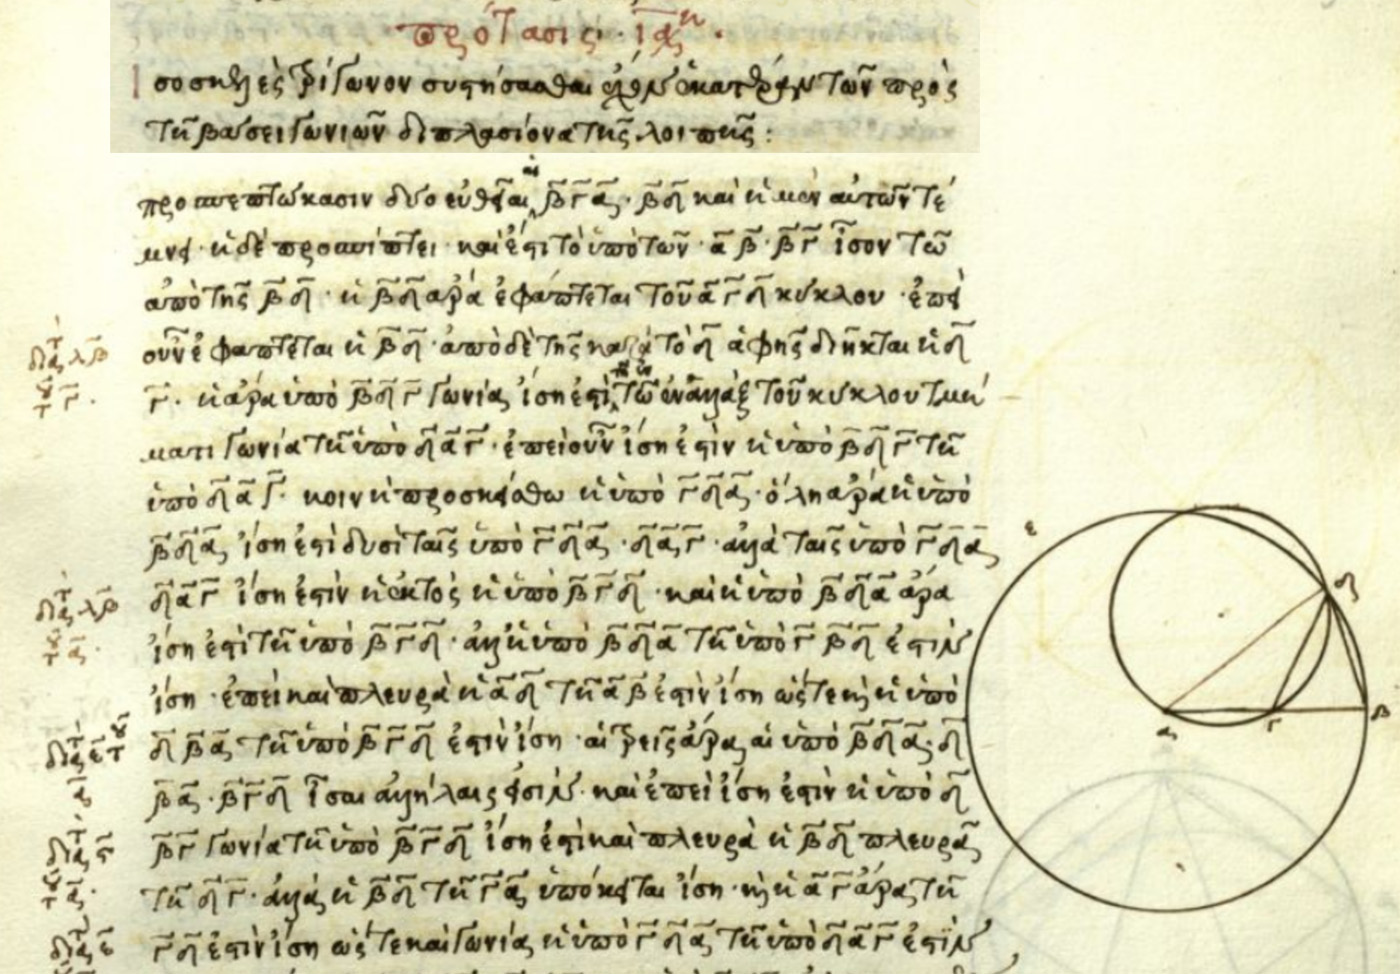 πρότασις · ια η ·
Ἰσοσκελὲς τρίγωνον συστήσασθαι ἔχον ἑκατέραν τῶν πρὸς
τῇ βάσει γωνιῶν διπλασίονα τῆς λοιπῆς :
προσπεπτώκασιν δύο εὐθεῖαι αἱ βγα · βδ καὶ ἡ μὲν αὐτῶν τέ
μνει · ἡ δὲ προσπίπτει · καὶ ἐστι τὸ ὑπὸ τῶν · αβ · βγ ἴσον τῶ
ἀπὸ τῆς βδ · ἡ βδ ἄρα ἐφάπτεται τοῦ αγδ κύκλου · ἐπεὶ
οὖν ἐφάπτεται ἡ βδ · ἀπὸ δὲ τῆς κατὰ τὸ δ ἁφῆς διῆκται ἡ δ
γ · ἡ ἄρα ὑπὸ βδγ γωνία ἴση ἐστὶ τῶ ἐναλλὰξ τοῦ κύκλου τμή
ματι γωνία τῆ ὑπὸ δαγ · ἐπεὶ οὖν ἴση ἐστὶν ἡ ὑπὸ βδγ τῆ
ὑπὸ δαγ · κοινὴ προσκείσθω ἡ ὑπὸ γδα · ὅλη ἄρα ἡ ὑπὸ
βδα ἴση ἐστὶ δυσὶ ταῖς ὑπὸ γδα · δαγ · ἀλλὰ ταῖς ὑπὸ γδα
δαγ ἴση ἐστὶν ἡ ἐκτὸς ἡ ὑπὸ βγδ · καὶ ἡ ὑπὸ βδα ἄρα
ἴση ἐστὶ τῆ ὑπὸ βγδ · ἀλλ' ἡ ὑπὸ βδα τῆ ὑπὸ γβδ ἐστὶν
ἴση · ἐπεὶ καὶ πλευρὰ ἡ αδ τῆ αβ ἐστὶν ἴση ὥστε καὶ ἡ ὑπὸ
δβα τῆ ὑπὸ βγδ ἐστὶν ἴση · αἱ τρεῖς ἄρα αἱ ὑπὸ βδα · δ
βα · βγδ ἴσαι ἀλλήλαις εἰσίν · καὶ ἐπεὶ ἴση ἐστὶν ἡ ὑπὸ δ
βγ γωνία τῆ ὑπὸ βγδ ἴση ἐστὶ καὶ πλευρὰ ἡ βδ πλευρᾶ
τῆ δγ · ἀλλὰ ἡ βδ τῆ γα ὑπόκειται ἴση · καὶ ἡ αγ ἄρα τῆ
γδ ἐστὶν ἴση ὥστε καὶ γωνία ἡ ὑπὸ γδα τῆ ὑπὸ δαγ ἐστὶν
διὰ τ λβ
τοῦ γ ·
διὰ τ λβ
τοῦ α ·
διὰ τ ε τοῦ
α
διὰ τ ς
τοῦ α ·
διὰ τ ε
ε
δ
α
γ
β